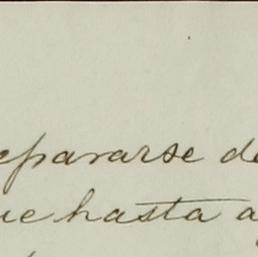 epararse de
ue hasta a